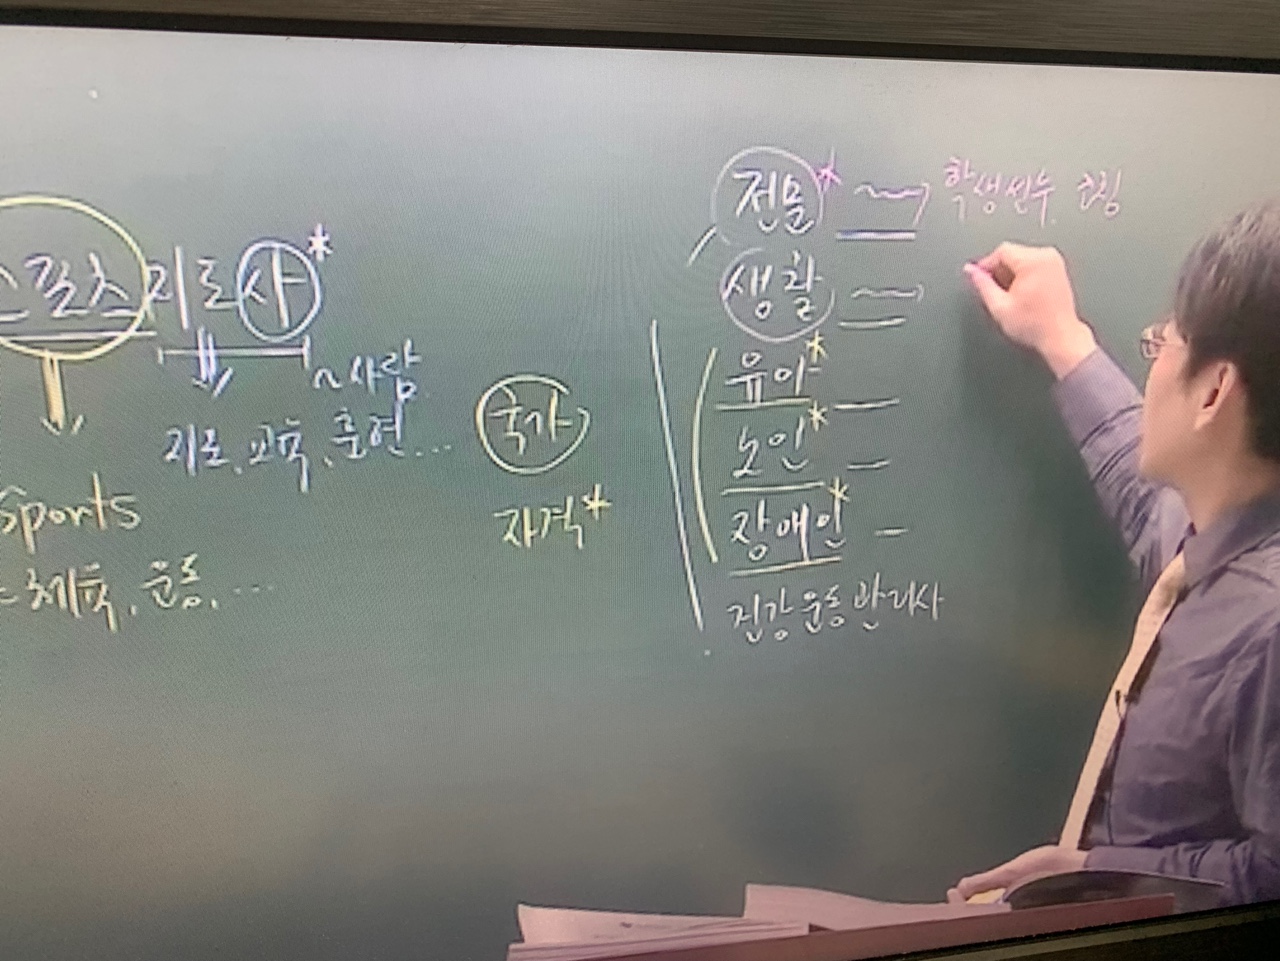 스포츠지도사*
~사람
지도、교육、훈련...
Sports
= 체육、운동、...
국가
자격*
전문* ~ 학생선수 코칭
생활 ~
유아*
노인*
장애인*
건강운동관리사